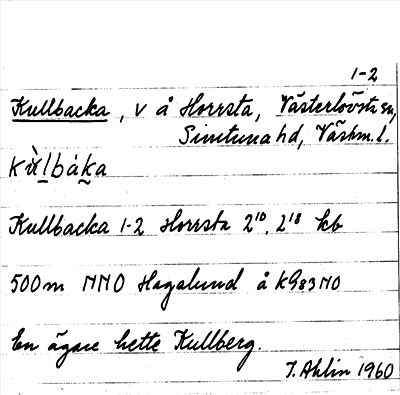 1-2
Kullbacka, v å Horrsta, Västerlövsta sn,
Simtuna hd, Västm. l.
Kullbacka 1-2 Horrsta 2¹⁰, 2¹⁸ kb
500 m NNO Hagalund å k983NO
En ägare hette Kullberg.
T. Ahlin 1960